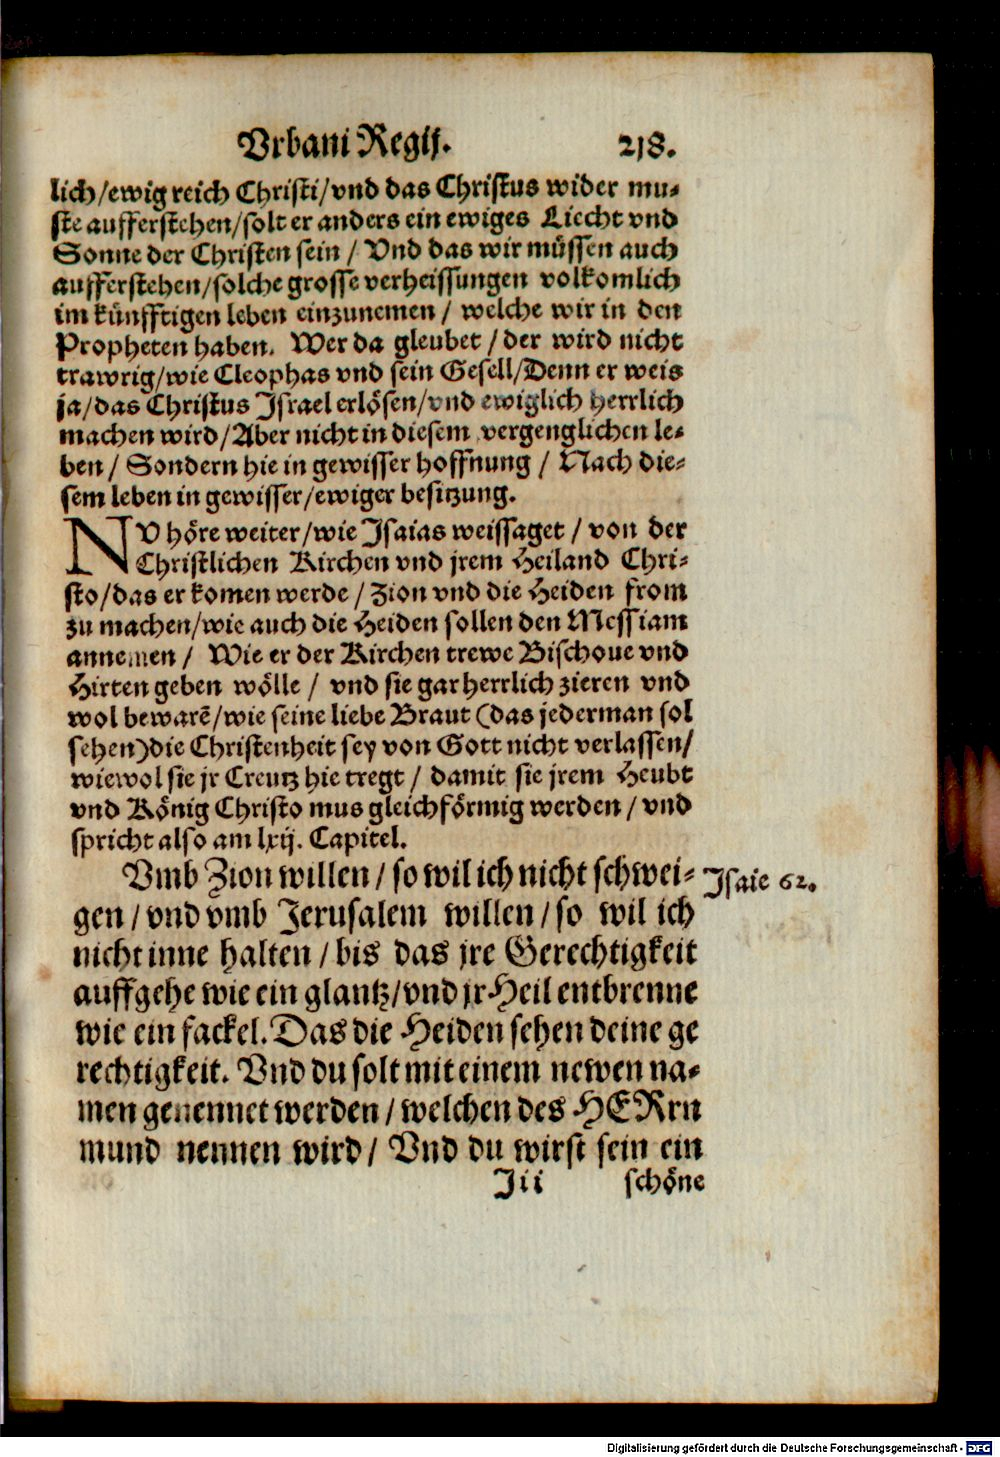 Vrbani Regij. 218.
lich/ewig reich Christi/vnd das Christus wider mu-
ste aufferstehen/solt er anders ein ewiges Liecht vnd
Sonne der Christen sein / Vnd das wir müssen auch
aufferstehen/solche grosse verheissungen volkomlich
im künfftigen leben einzunemen / welche wir in den
Propheten haben. Wer da gleubet / der wird nicht
trawrig/wie Cleophas vnd sein Gesell/Denn er weis
ja/das Christus Israel erlösen/vnd ewiglich herrlich
machen wird/Aber nicht in diesem vergenglichen le-
ben / Sondern hie in gewisser hoffnung / Nach die-
sem leben in gewisser/ewiger besitzung.
NV höre weiter/wie Isaias weissaget / von der
Christlichen Kirchen vnd jrem Heiland Chri-
sto/das er komen werde / Zion vnd die Heiden from
zu machen/wie auch die Heiden sollen den Messiam
annemen / Wie er der Kirchen trewe Bischoue vnd
Hirten geben wölle / vnd sie gar herrlich zieren vnd
wol bewarē/wie seine liebe Braut (das jederman sol
sehen)die Christenheit sey von Gott nicht verlassen/
wiewol sie jr Creutz hie tregt / damit sie jrem Heubt
vnd König Christo mus gleichförmig werden / vnd
spricht also am lxij. Capitel.
Vmb Zion willen / so wil ich nicht schwei- Isaie 62.
gen / vnd vmb Jerusalem willen / so wil ich
nicht inne halten / bis das jre Gerechtigkeit
auffgehe wie ein glantz/vnd jr Heil entbrenne
wie ein fackel. Das die Heiden sehen deine ge
rechtigkeit. Vnd du solt mit einem newen na-
men genennet werden / welchen des HERrn
mund nennen wird / Vnd du wirst sein ein
Jii schöne
Digitalisierung gefördert durch die Deutsche Forschungsgemeinschaft - DFG